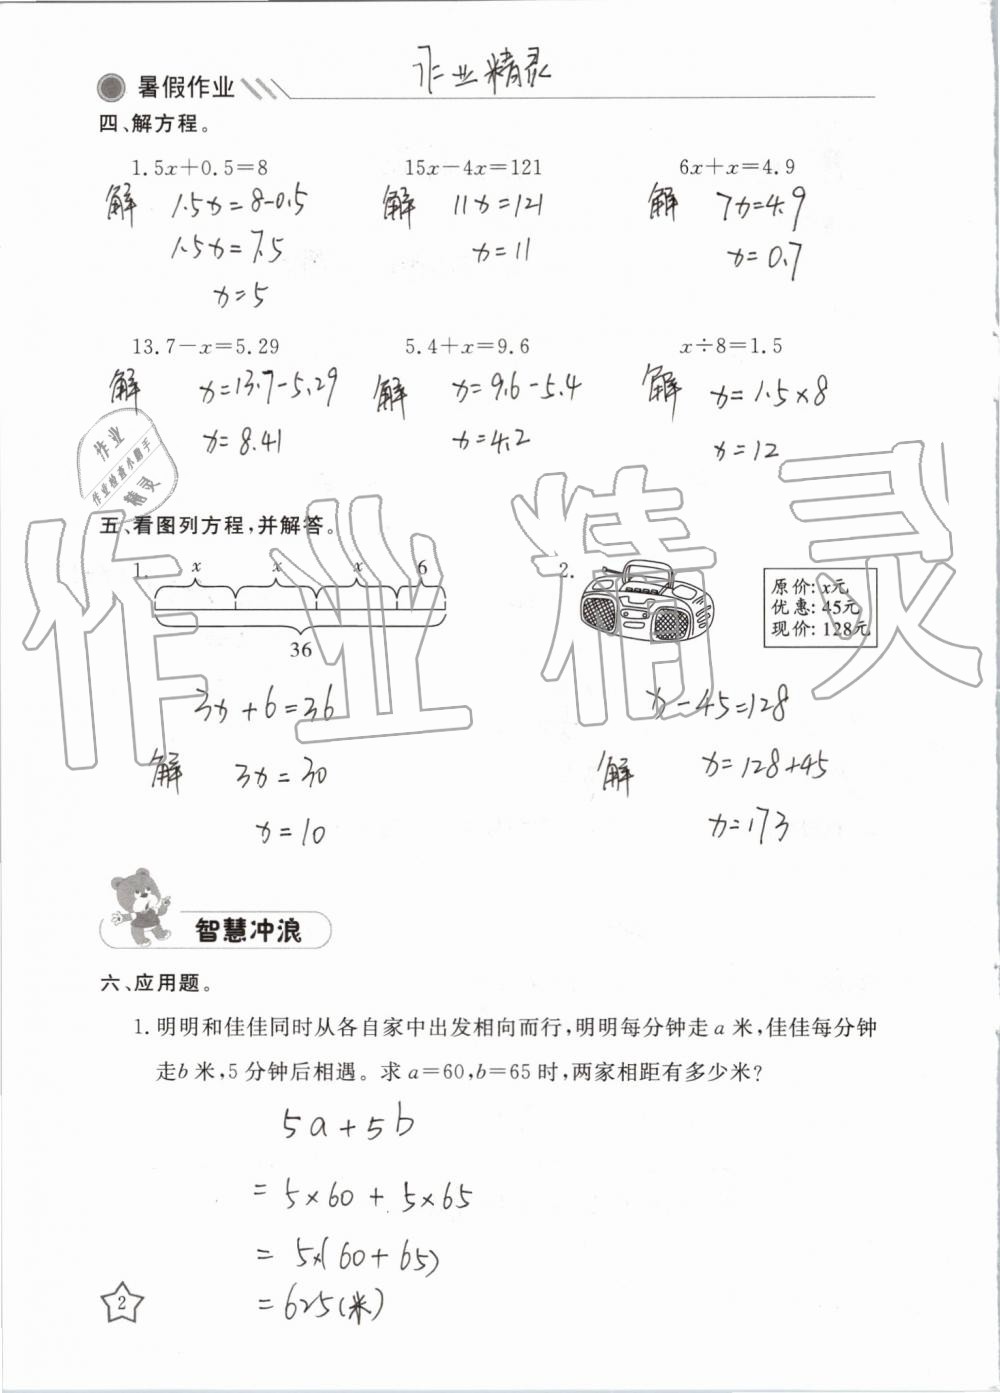 暑假作业
作业精灵
四、解方程。
1.5x+0.5=8 15x-4x=121 6x+x=4.9
解 1.5x=8-0.5 解 11x=121 解 7x=4.9
1.5x=7.5 x=11 x=0.7
x=5
13.7-x=5.29 5.4+x=9.6 x÷8=1.5
解 x=13.7-5.29 解 x=9.6-5.4 解 x=1.5×8
x=8.41 x=4.2 x=12
作业
作业检查小助手
精灵
五、看图列方程,并解答。
1. x x x 6
36
2.
原价:x元
优惠:45元
现价:128元
3x+6=36 x-45=128
解 3x=30 解 x=128+45
x=10 x=173
作业精灵
智慧冲浪
六、应用题。
1.明明和佳佳同时从各自家中出发相向而行,明明每分钟走a米,佳佳每分钟
走b米,5分钟后相遇。求a=60,b=65时,两家相距有多少米?
5a+5b
=5×60+5×65
=5×(60+65)
=625(米)
2